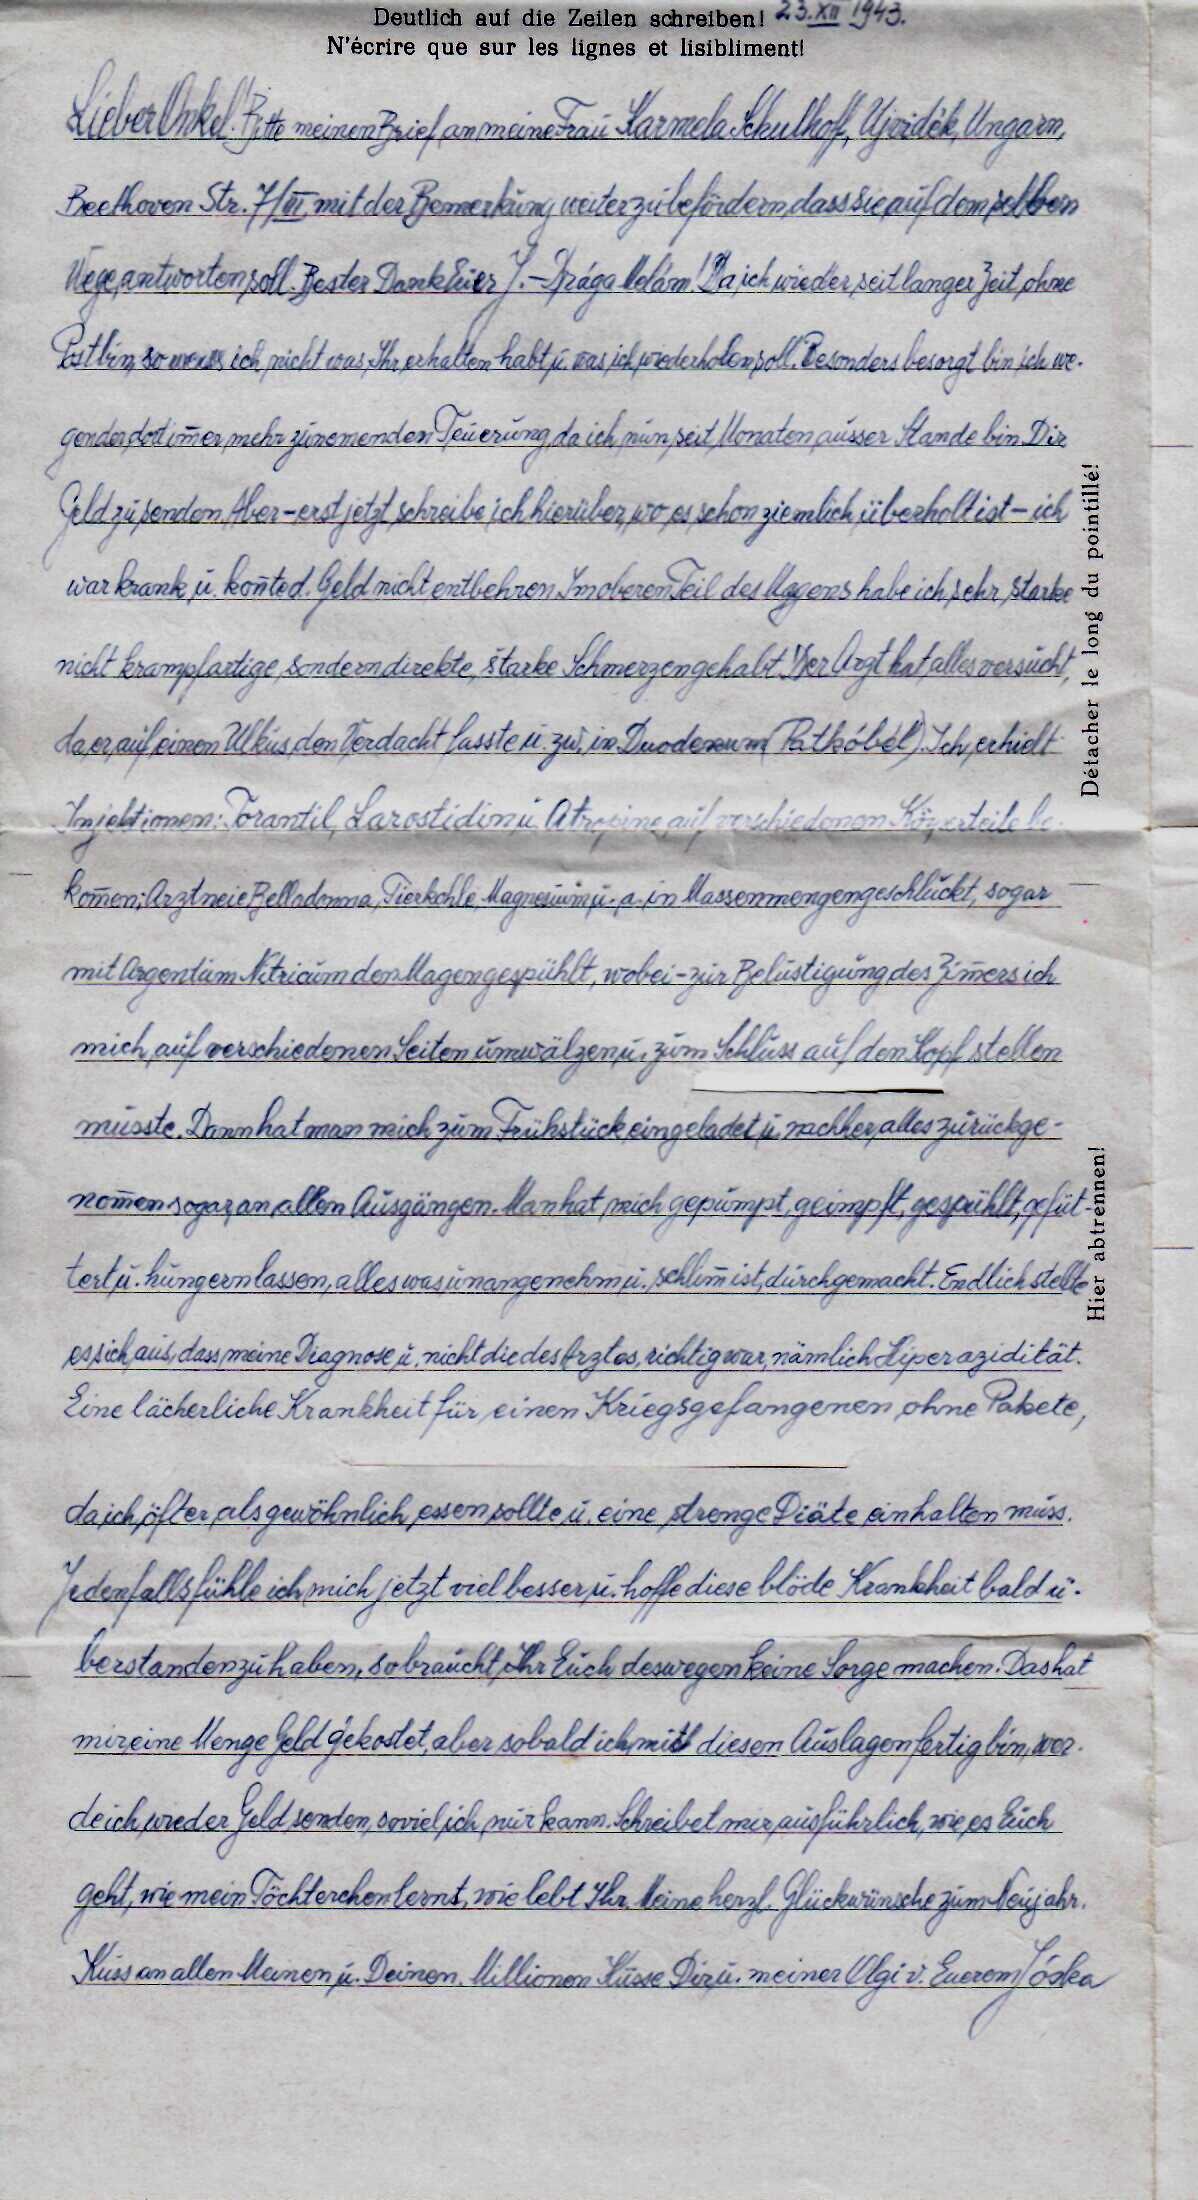 Deutlich auf die Zeilen schreiben! 23. XII 1943.
N'écrire que sur les lignes et lisibliment!
Lieber Onkel! Bitte meinen Brief an meine Frau Karmela Schulhoff, Ujvidék, Ungarn,
Beethoven Str. 7/III mit der Bemerkung weiterzubefördern, dass sie auf demselben
Wege antworten soll. Bester Dank Euer J. – Drága Melám! Da ich wieder seit langer Zeit ohne
Post bin, so weiss ich nicht was Ihr erhalten habt u. was ich wiederholen soll. Besonders besorgt bin ich we-
gen der dort im̅er mehr zunemenden Teuerung, da ich nun seit Monaten ausser Stande bin Dir
Geld zu senden. Aber – erst jetzt schreibe ich hierüber, wo es schon ziemlich überholt ist – ich
war krank u. kon̅te d. Geld nicht entbehren. Im oberen Teil des Magens habe ich sehr starke
nicht krampfartige, sondern direkte, starke Schmerzen gehabt. Der Arzt hat alles versucht,
da er auf einen Ulkus den Verdacht fasste u. zw. in Duodenum (Patkóbél). Ich erhielt
Injektionen: Torantil, Larostidin u. Atropine auf verschiedenen Körperteile be-
kom̅en; Arztneie Belladonna, Tierkohle, Magnesium u. a. in Massenmengen geschluckt, sogar
mit Argentum Nitricum den Magen gespühlt, wobei – zur Belustigung des Zim̅ers ich
mich auf verschiedenen Seiten umwälzen u. zum Schluss auf den Kopf stellen
musste. Dann hat man mich zum Frühstück eingeladet u. nachher alles zurückge-
nom̅en sogar an allen Ausgängen. Man hat mich gepumpt, geimpft, gespühlt, gefüt-
tert u. hungern lassen, alles was unangenehm u. schlim̅ ist, durchgemacht. Endlich stellte
es sich aus, dass meine Diagnose u. nicht die des Arztes, richtig war, nämlich Hiperazidität.
Eine lächerliche Krankheit für einen Kriegsgefangenen ohne Pakete,
da ich öfter als gewöhnlich essen sollte u. eine strenge Diäte einhalten muss.
Jedenfalls fühle ich mich jetzt viel besser u. hoffe diese blöde Krankheit bald ü-
berstanden zu haben, so braucht Ihr Euch deswegen keine Sorge machen. Das hat
mir eine Menge Geld gekostet, aber sobald ich mit diesen Auslagen fertig bin, wer-
de ich wieder Geld senden, soviel ich nur kann. Schreibet mir ausführlich, wie es Euch
geht, wie mein Töchterchen lernt, wie lebt Ihr. Meine herzl. Glückwünsche zum Neujahr.
Kuss an allen Meinen u. Deinen. Millionen Küsse Dir u. meiner Olgi v. Euerem Jóska
Détacher le long du pointillé!
Hier abtrennen!